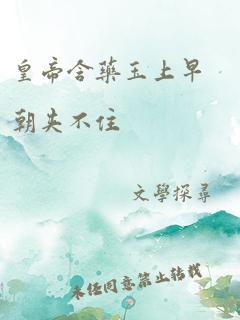 皇帝含藥玉上早
朝夾不住
文學探尋
未經同意禁止轉載